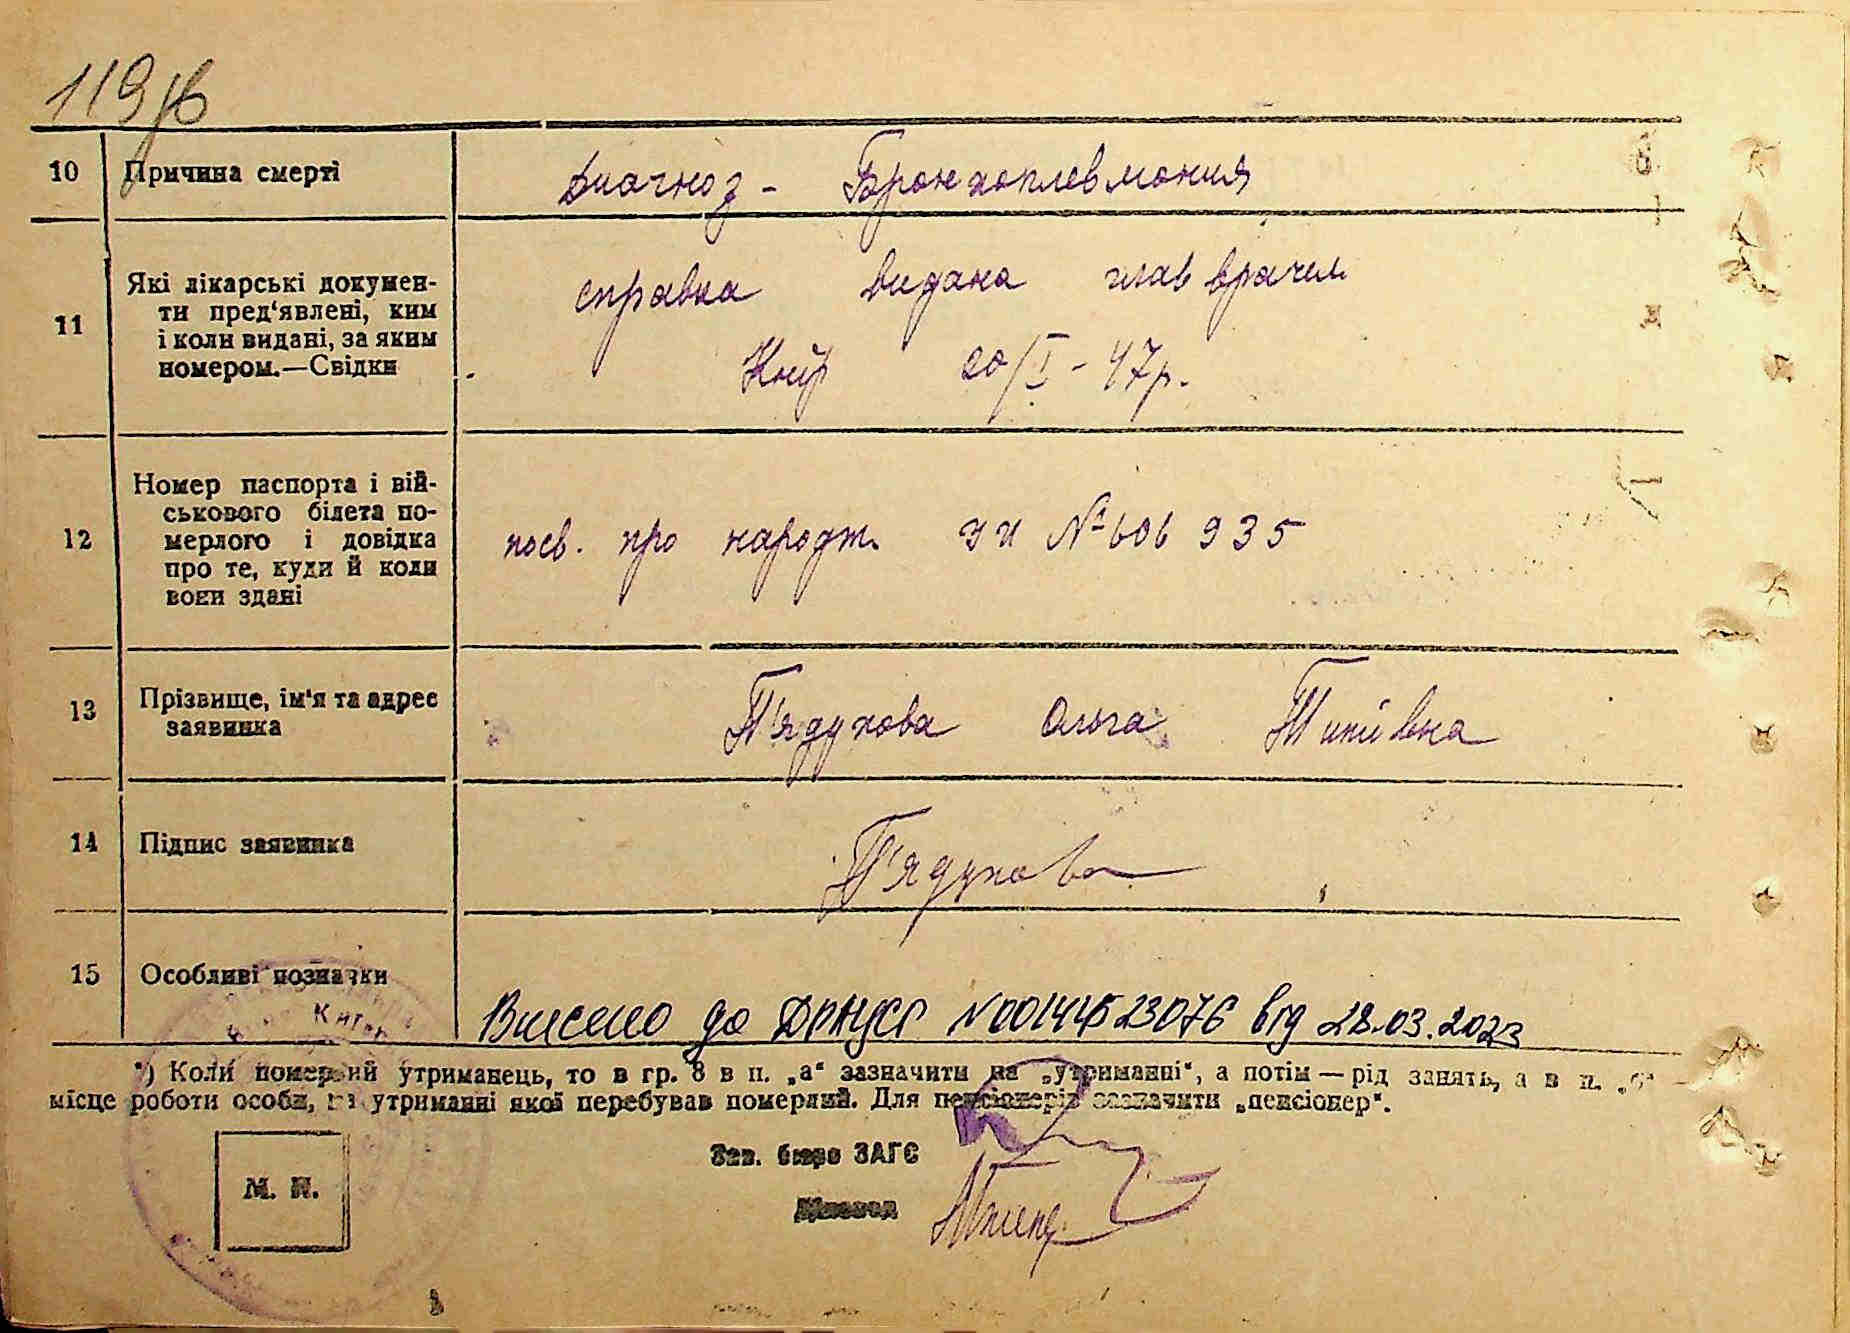 119
10 Причина смерті Диагноз - Бронхоплевмония
11 Які лікарські докумен-
ти пред'явлені, ким
і коли видані, за яким
номером.—Свідки
справка видана глав врачем
20/I - 47р.
12 Номер паспорта і вій-
ськового білета по-
мерлого і довідка
про те, куди й коли
вони здані
посв. про народж. № 606 935
13 Прізвище, ім'я та адрес
заявника
П'ядухова Ольга
14 Підпис заявника П'ядухова
15 Особливі позначки
Внесено до ДРАЦСГ N00144523076 від 28.03.2023
*) Коли померлий утриманець, то в гр. 8 в п. „а“ зазначити на „утриманні“, а потім — рід занять, а в п. „б“
місце роботи особи, на утриманні якої перебував померлий. Для пенсіонерів зазначити „пенсіонер“.
Зав. бюро ЗАГС
М. П.
Діловод